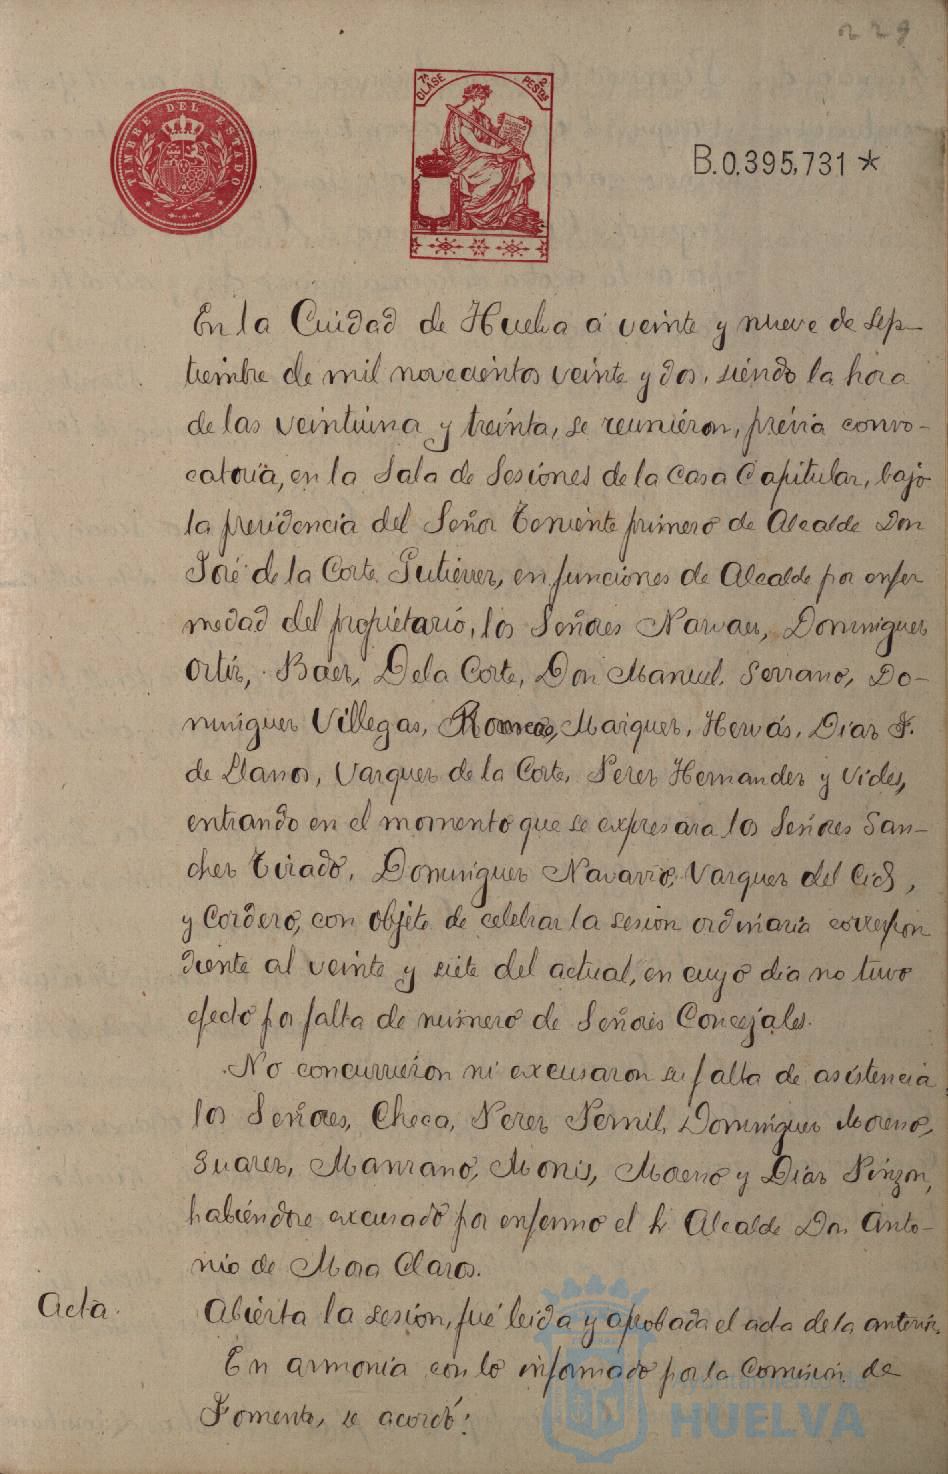 229
TIMBRE DEL ESTADO
7ª CLASE
2 PESTAS
B.0,395,731 *
En la Cuidad de Huelva á veinte y nueve de Sep-
tiembre de mil novecientos veinte y dos, siendo la hora
de las veintiuna y treinta, se reunieron, prévia convo-
catoria, en la Sala de Sesiones de la Casa Capitular, bajo
la presidencia del Señor Teniente primero de Alcalde Don
José de la Corte Gutierrez, en funciones de Alcalde por enfer
medad del propietario, los Señores Narvaez, Dominguez
Ortiz, Baez, De la Corte, Don Manuel Serrano, Do-
minguez Villegas, Romeo, Marquez, Hervás, Diaz F.
de Llanos, Vazquez de la Corte, Perez Hernandez y Vides,
entrando en el momento que se expresara los Señores San-
chez Tirado, Dominguez Navarro, Vazquez del Cid,
y Cordero, con objeto de celebrar la sesion ordinaria correspon
diente al veinte y siete del actual, en cuyo dia no tuvo
efecto por falta de número de Señores Concejales.
No concurrieron ni excusaron su falta de asistencia
los Señores, Checa, Perez Pernil, Dominguez Moreno,
Suarez, Manzano, Monis, Moreno y Diaz Pinzon,
habiendose excusado por enfermo el Sr Alcalde Don Anto-
nio de Mora Claros.
Acta.
Abierta la sesión, fué leida y aprobada el acta de la anterior.
En armonia con lo informado por la Comisión de
Fomento, se acordó:
Ayuntamiento de
HUELVA